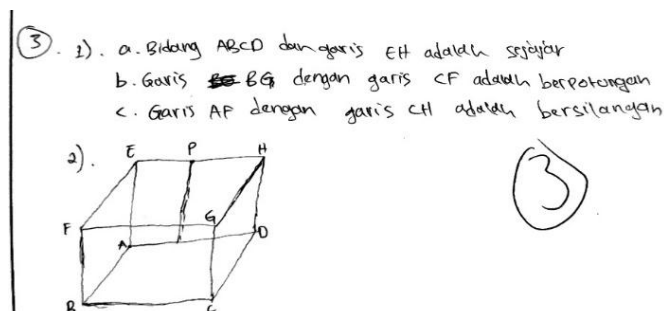 3. 1). a. Bidang ABCD dan garis EH adalah sejajar
b. Garis BG dengan garis CF adalah berpotongan
c. Garis AF dengan garis CH adalah bersilangan
2). E P H
F G
A D
B C
3